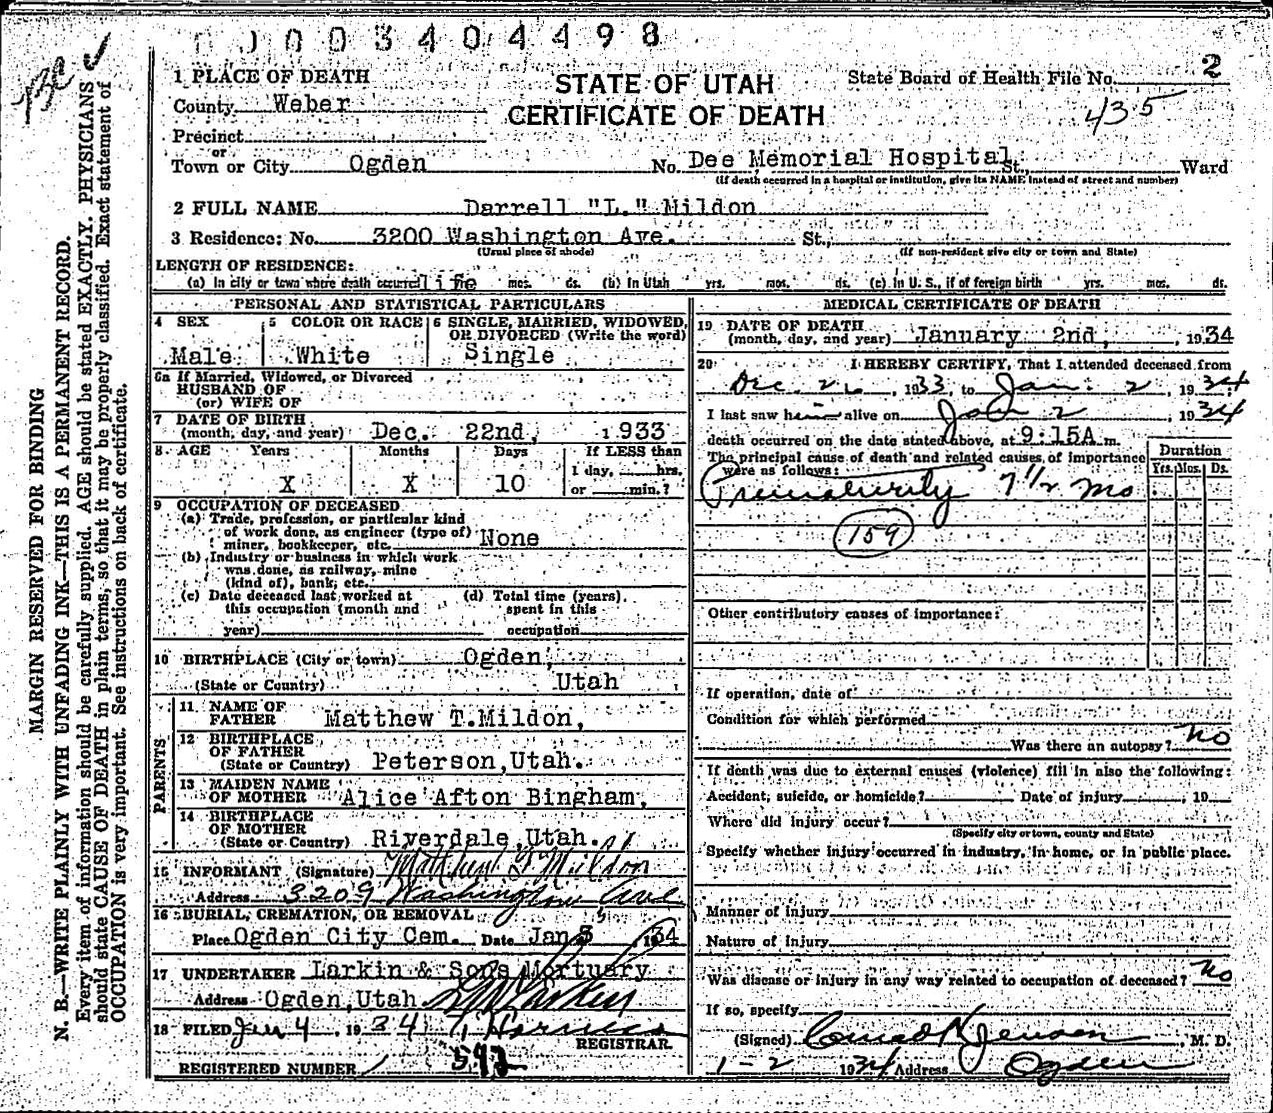 0003404498
1 PLACE OF DEATH
STATE OF UTAH
CERTIFICATE OF DEATH
State Board of Health File No. 2
435
County Weber
Precinct
or
Town or City Ogden No. Dee Memorial Hospital St., Ward
(If death occurred in a hospital or institution, give its NAME instead of street and number)
2 FULL NAME Darrell "L." Mildon
3 Residence: No. 3200 Washington Ave. St.,
(Usual place of abode) (If non-resident give city or town and State)
LENGTH OF RESIDENCE:
(a) In city or town where death occurred life mos. ds. (b) In Utah yrs. mos. ds. (c) In U. S., if of foreign birth yrs. mos. ds.
PERSONAL AND STATISTICAL PARTICULARS
4 SEX 5 COLOR OR RACE 6 SINGLE, MARRIED, WIDOWED, OR DIVORCED (Write the word)
Male White Single
6a If Married, Widowed, or Divorced
HUSBAND OF
(or) WIFE OF
7 DATE OF BIRTH
(month, day, and year) Dec. 22nd, 1933
8 AGE Years Months Days If LESS than
1 day, hrs.
X X 10 or min.?
9 OCCUPATION OF DECEASED
(a) Trade, profession, or particular kind
of work done, as engineer (type of)
miner, bookkeeper, etc. None
(b) Industry or business in which work
was done, as railway, mine
(kind of), bank, etc.
(c) Date deceased last worked at (d) Total time (years)
this occupation (month and spent in this
year) occupation
10 BIRTHPLACE (City or town) Ogden,
(State or Country) Utah
PARENTS
11 NAME OF
FATHER Matthew T.Mildon,
12 BIRTHPLACE
OF FATHER
(State or Country) Peterson,Utah.
13 MAIDEN NAME
OF MOTHER Alice Afton Bingham,
14 BIRTHPLACE
OF MOTHER
(State or Country) Riverdale,Utah.
15 INFORMANT (Signature) Matthew T Mildon
Address 3209 Washington Ave
16 BURIAL, CREMATION, OR REMOVAL
Place Ogden City Cem. Date Jan 3 1934
17 UNDERTAKER Larkin & Sons Mortuary
Address Ogden,Utah
18 FILED Jan 4, 1934
REGISTRAR.
REGISTERED NUMBER 592
MEDICAL CERTIFICATE OF DEATH
19 DATE OF DEATH
(month, day, and year) January 2nd, , 1934
20 I HEREBY CERTIFY, That I attended deceased from
Dec 26, 1933, to Jan. 2, 1934
I last saw him alive on Jan 2, 1934
death occurred on the date stated above, at 9:15A m.
The principal cause of death and related causes of importance
were as follows:
Duration
Yrs. Mos. Ds.
Prematurity 7 1/2 mo
159
Other contributory causes of importance:
If operation, date of
Condition for which performed
Was there an autopsy? No
If death was due to external causes (violence) fill in also the following:
Accident, suicide, or homicide? Date of injury , 19
Where did injury occur?
(Specify city or town, county and State)
Specify whether injury occurred in industry, in home, or in public place.
Manner of injury
Nature of injury
Was disease or injury in any way related to occupation of deceased? No
If so, specify
(Signed) Conrad H Jensen, M. D.
1-2 1934 Address Ogden
MARGIN RESERVED FOR BINDING
N. B.—WRITE PLAINLY WITH UNFADING INK—THIS IS A PERMANENT RECORD.
Every item of information should be carefully supplied. AGE should be stated EXACTLY. PHYSICIANS
should state CAUSE OF DEATH in plain terms, so that it may be properly classified. Exact statement of
OCCUPATION is very important. See instructions on back of certificate.